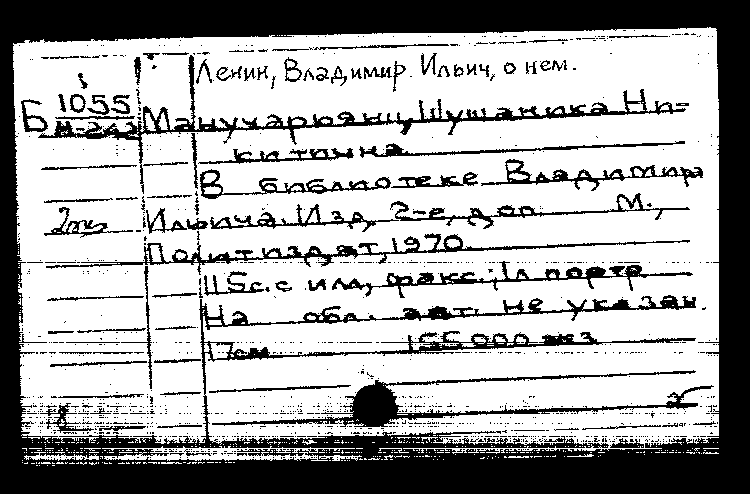 Ленин, Владимир Ильич, о нем.
Б 1055
М-242
Манучарьянц, Шушаника Ни-
китична
В библиотеке Владимира
2 экз Ильича. Изд. 2-е, доп. М.,
Политиздат, 1970.
115с. с илл, факс.; 1л портр
На обл. авт. не указан.
17см 155000 экз
8